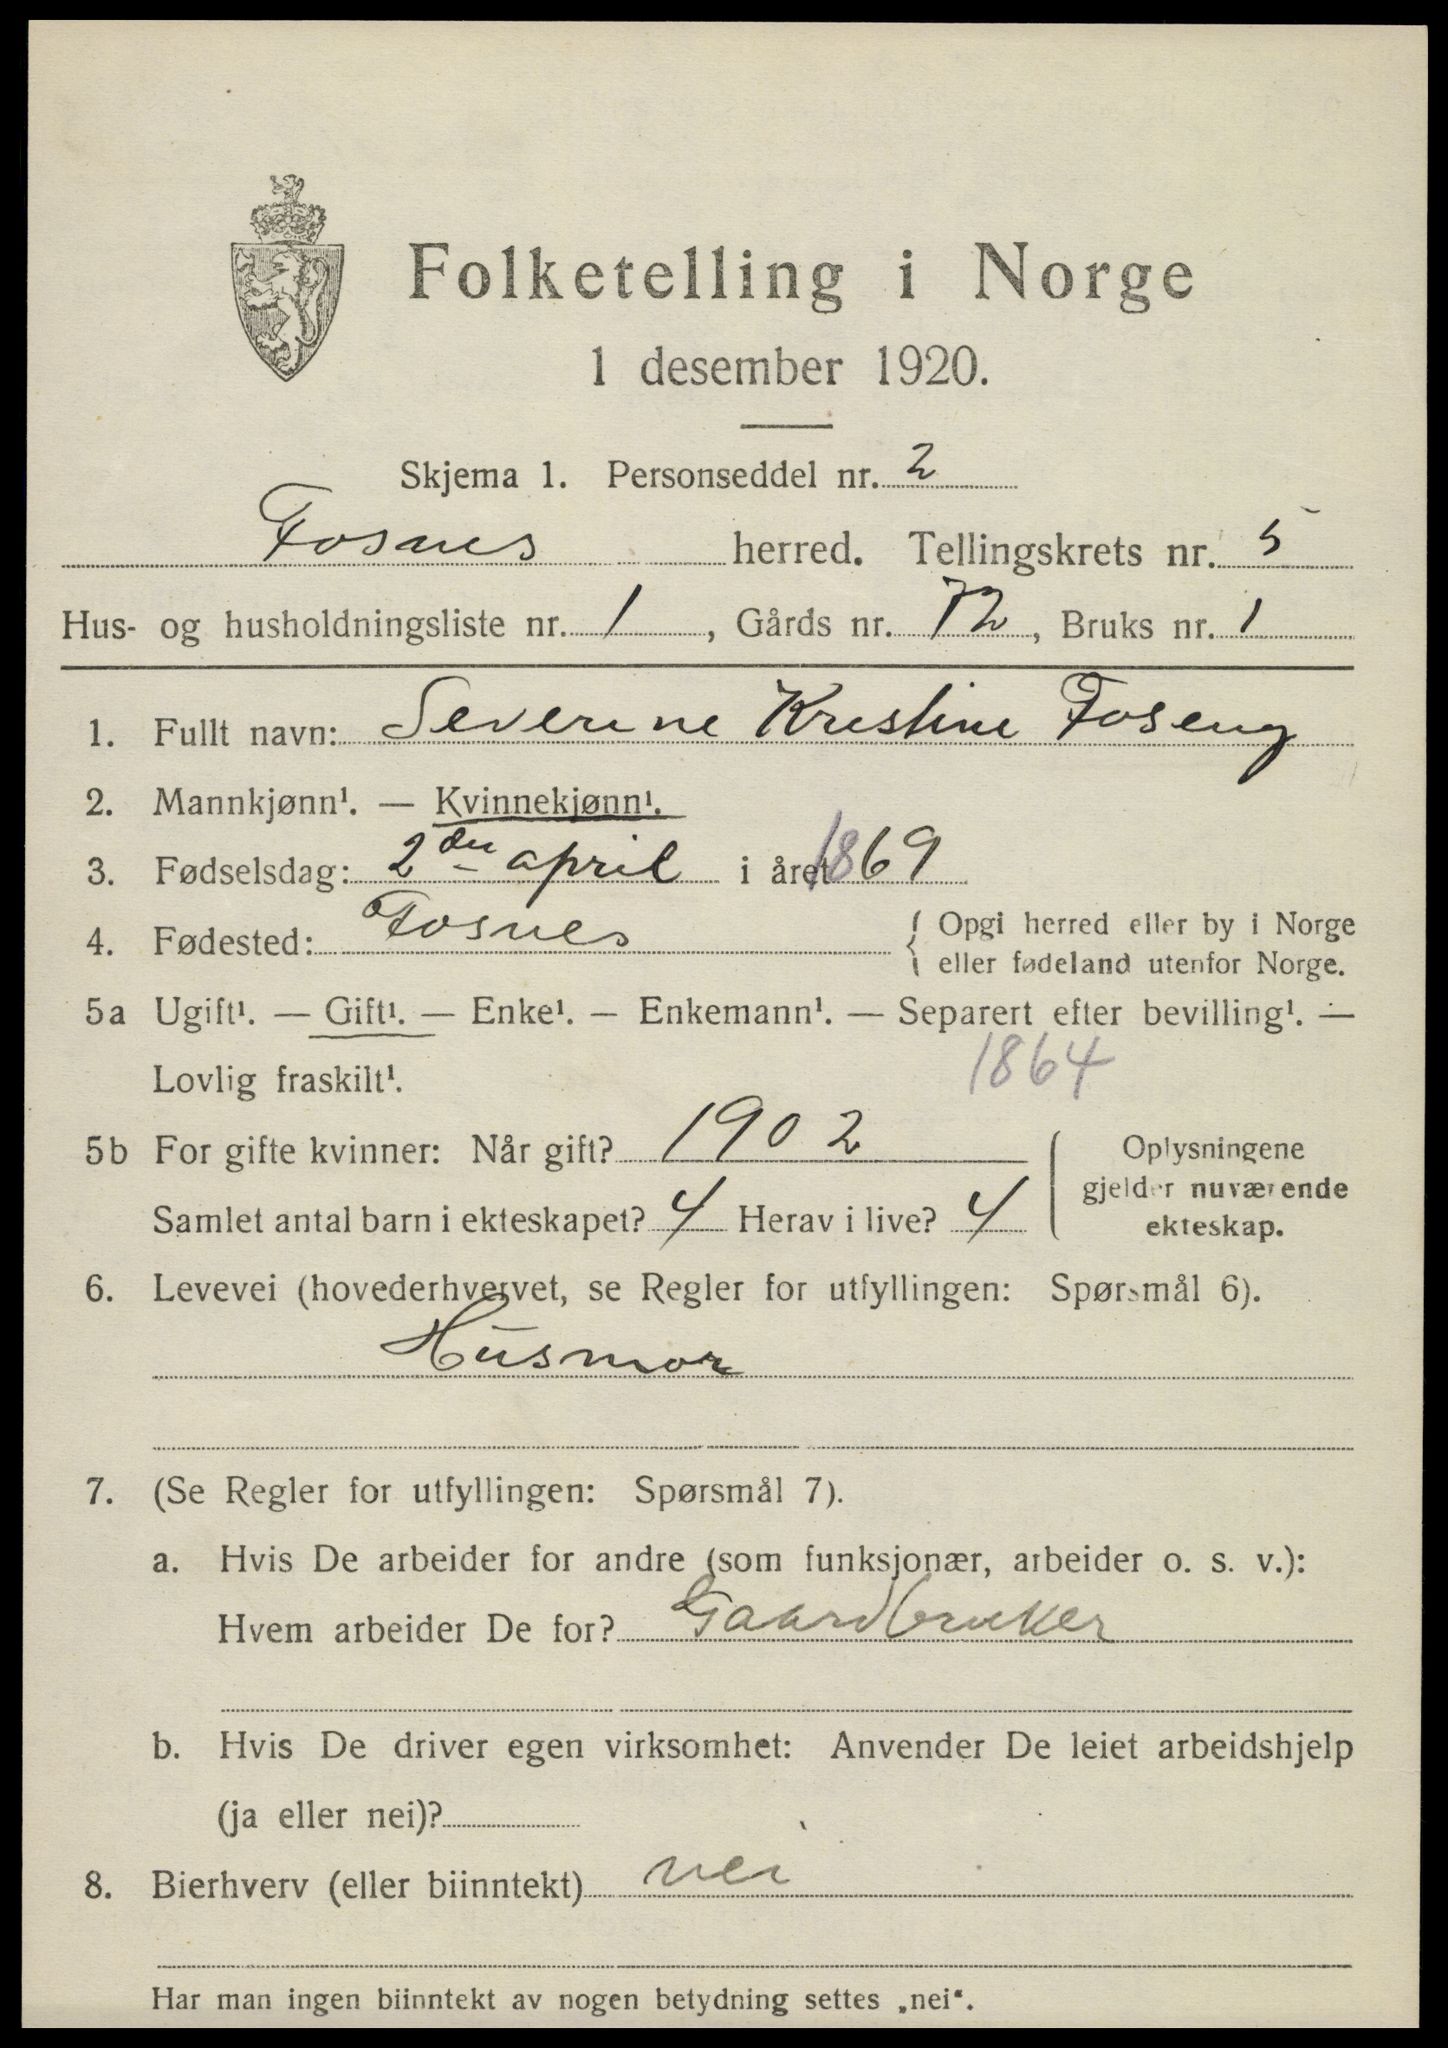 Folketelling i Norge
1 desember 1920.
Skjema 1. Personseddel nr. 2
Fosnes herred. Tellingskrets nr. 5
Hus- og husholdningsliste nr. 1, Gårds nr. 72, Bruks nr. 1
1. Fullt navn: Severine Kristine Foseng
2. Mannkjønn¹. — Kvinnekjønn¹.
3. Fødselsdag: 2den april i året 1869
4. Fødested: Fosnes { Opgi herred eller by i Norge
eller fødeland utenfor Norge.
5a Ugift¹. — Gift¹. — Enke¹. — Enkemann¹. — Separert efter bevilling¹. —
Lovlig fraskilt¹. 1864
5b For gifte kvinner: Når gift? 1902 { Oplysningene
gjelder nuværende
Samlet antal barn i ekteskapet? 4 Herav i live? 4 ekteskap.
6. Levevei (hovederhvervet, se Regler for utfyllingen: Spørsmål 6).
Husmor
7. (Se Regler for utfyllingen: Spørsmål 7).
a. Hvis De arbeider for andre (som funksjonær, arbeider o. s. v.):
Hvem arbeider De for? Gaardbruker
b. Hvis De driver egen virksomhet: Anvender De leiet arbeidshjelp
(ja eller nei)?
8. Bierhverv (eller biinntekt) nei
Har man ingen biinntekt av nogen betydning settes „nei“.